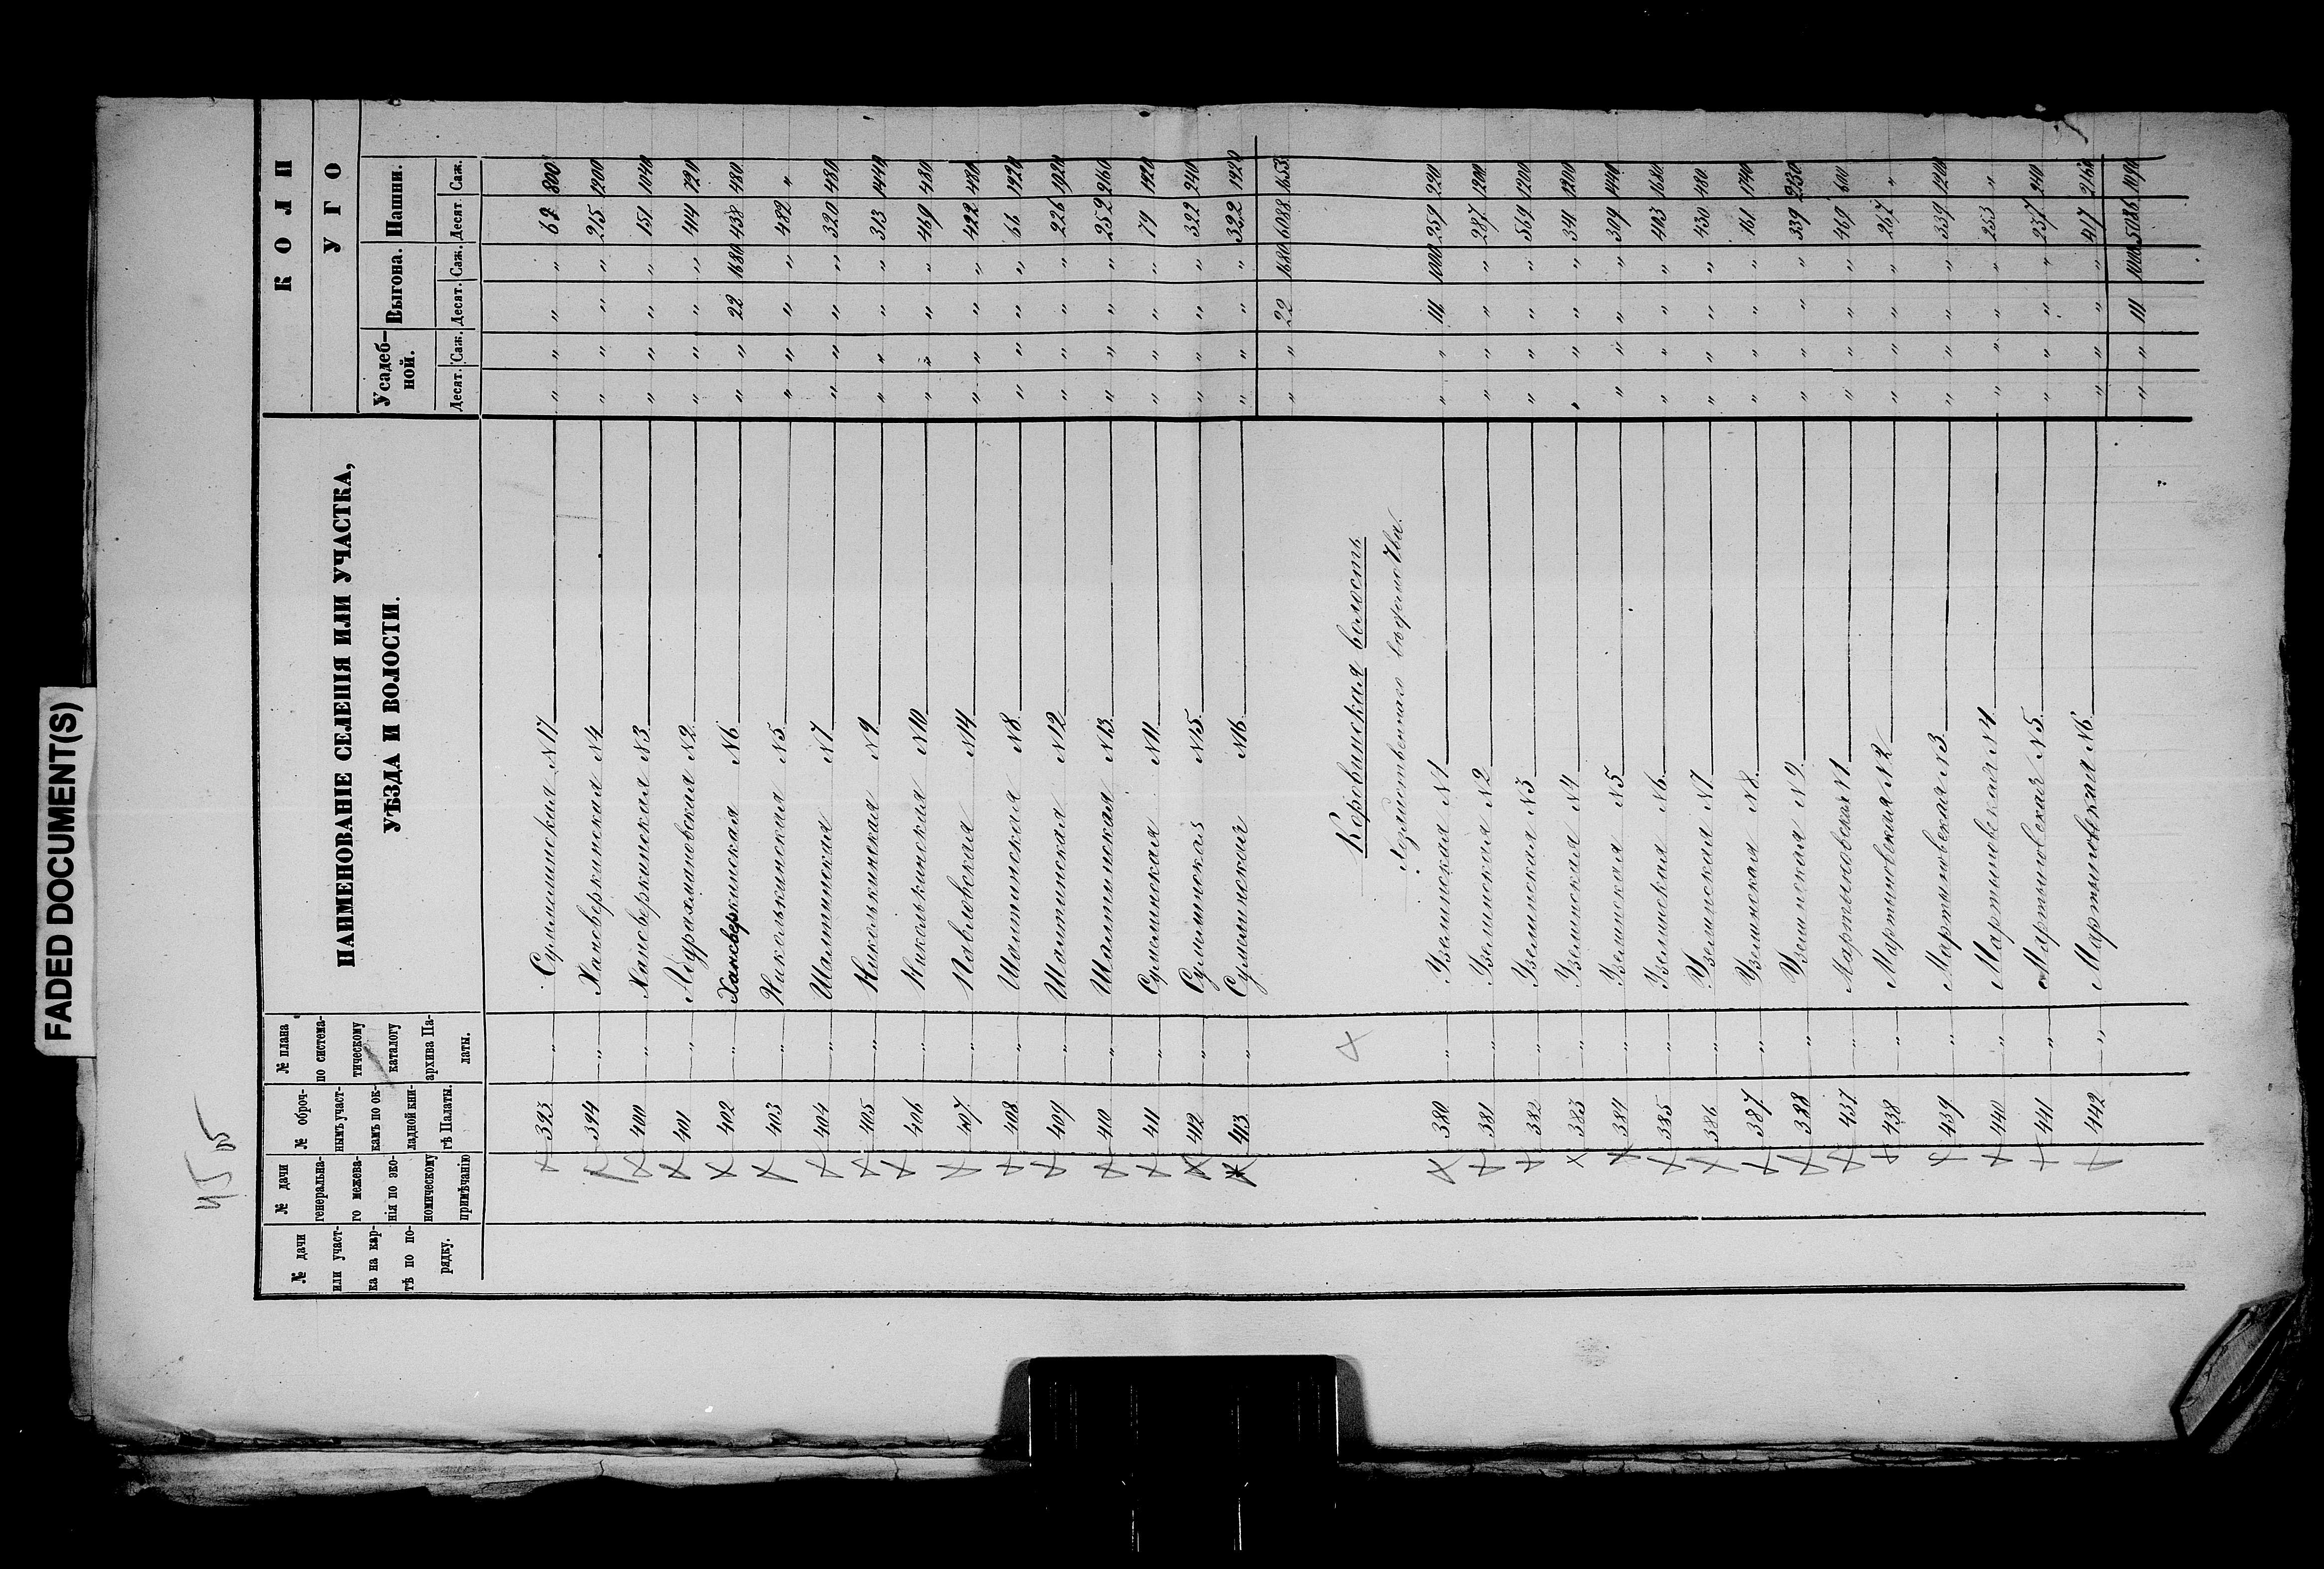 FADED DOCUMENT(S)
КОЛИ
УГО
№ дачи или участка на карте по порядку.
№ дачи генеральнаго межеванія по экономическому примѣчанію
№ оброчнымъ участкамъ по окладной книгѣ Палаты.
№ плана по систематическому каталогу архива Палаты.
НАИМЕНОВАНІЕ СЕЛЕНІЯ ИЛИ УЧАСТКА,
УѢЗДА И ВОЛОСТИ.
Усадебной. Выгона. Пашни.
Десят. Саж. Десят. Саж. Десят. Саж.
393 " Сурметинская №17 " " " " 67 800
394 " Хансверкинская №4 " " " " 215 1200
400 " Хансверкинская №3 " " " " 151 1040
401 " Абдрахмановская №2 " " " " 414 720
402 " Хансверкинская №6 " " 22 1680 438 480
403 " Николькинская №5 " " " " 482 "
404 " Шалтинская №7 " " " " 320 480
405 " Николькинская №9 " " " " 313 1440
406 " Николькинская №10 " " " " 469 480
407 " Павловская №14 " " " " 422 480
408 " Шалтинская №8 " " " " 66 1920
409 " Шалтинская №12 " " " " 226 1920
410 " Шалтинская №13 " " " " 252 2160
411 " №11 " " " " 79 1920
412 " №15 " " " " 322 240
413 " №16 " " " " 322 1920
" " 22 1680 6088 1653
Коровинская волость
Хозяйственнаго вѣдомства.
380 " Узелинская №1 " " 111 1000 259 220
381 " Узелинская №2 " " " " 287 1200
382 " Узелинская №3 " " " " 569 1200
383 " Узелинская №4 " " " " 341 1200
384 " Узелинская №5 " " " " 309 1440
385 " Узелинская №6 " " " " 463 1680
386 " Узелинская №7 " " " " 430 480
387 " Узелинская №8 " " " " 161 1740
388 " Узелинская №9 " " " " 339 2130
437 " Мартыновская №1 " " " " 469 600
438 " Мартыновская №2 " " " " 267 "
439 " Мартыновская №3 " " " " 339 1200
440 " Мартыновская №4 " " " " 253 "
441 " Мартыновская №5 " " " " 237 240
442 " Мартыновская №6 " " " " 417 2160
" " 111 1000 5186 1090